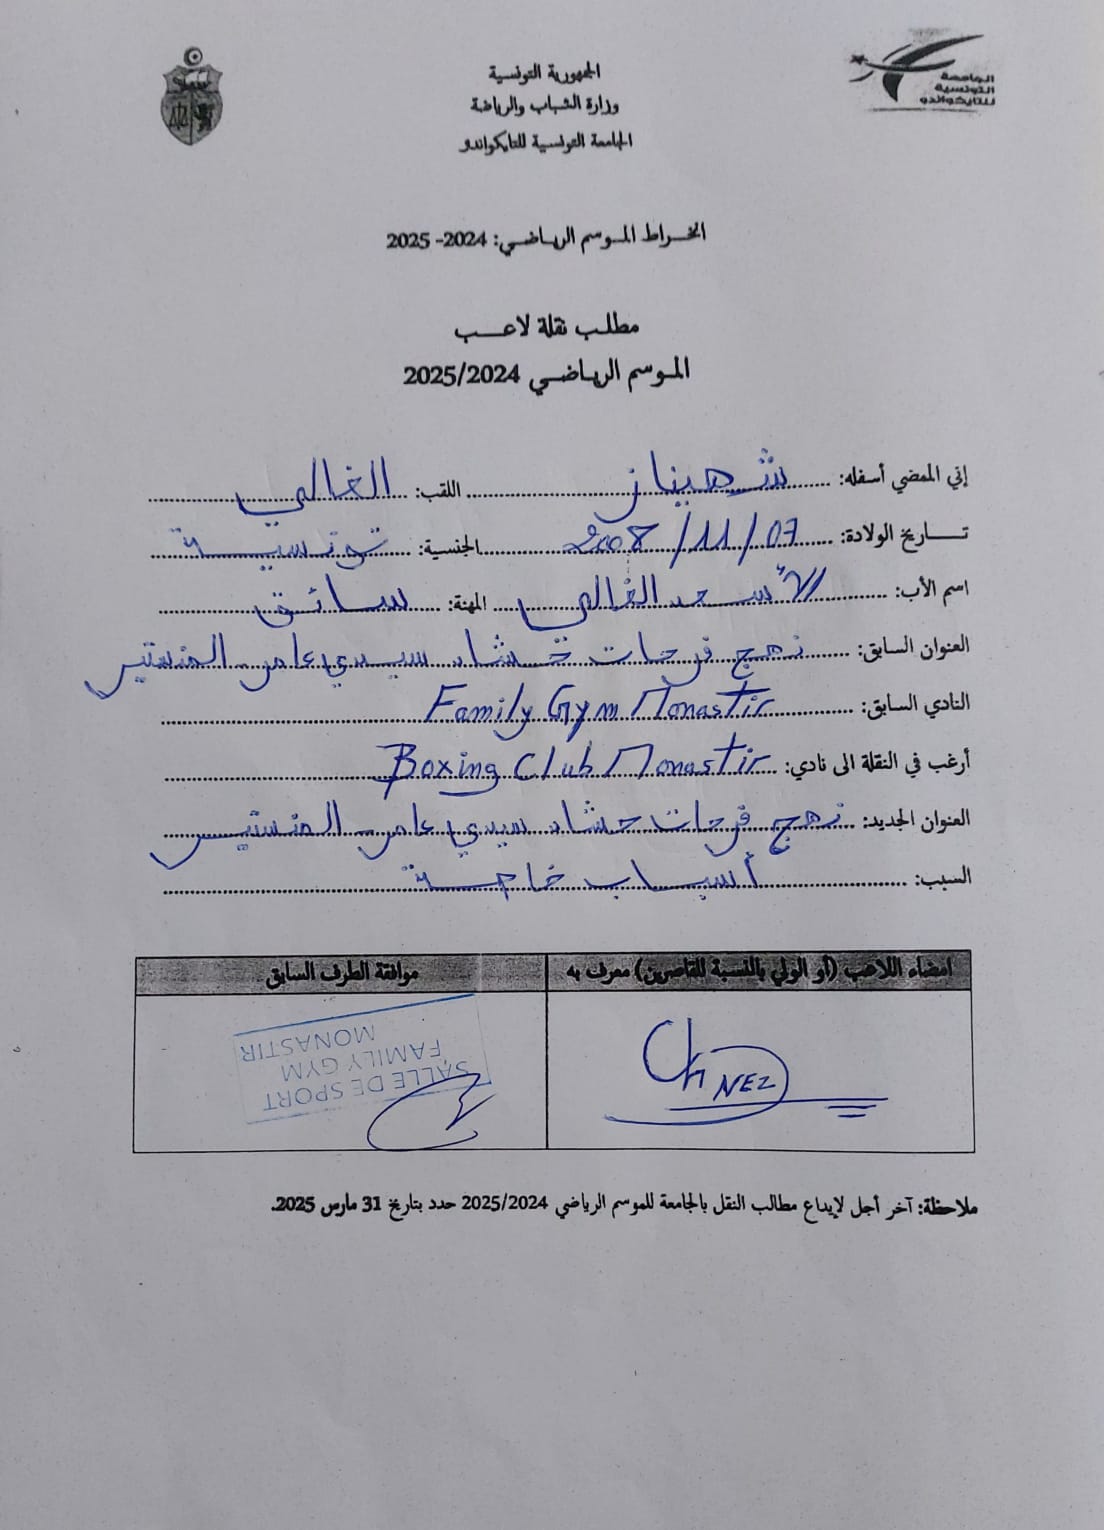 الجمهورية التونسية
وزارة الشباب والرياضة
الجامعة التونسية للتايكواندو
الجامعة
التونسية
للتايكواندو
انخراط الموسم الرياضي: 2024- 2025
مطلب نقلة لاعب
الموسم الرياضي 2025/2024
إني الممضي أسفله: شهيناز اللقب: الغالي
تاريخ الولادة: 07/11/2008 الجنسية: تونسية
اسم الأب: الأسعد الغالي المهنة: سائق
العنوان السابق: نهج فرحات حشاد سيدي عامر المنستير
النادي السابق: Family Gym Monastir
أرغب في النقلة الى نادي: Boxing Club Monastir
العنوان الجديد: نهج فرحات حشاد سيدي عامر المنستير
السبب: أسباب خاصة
امضاء اللاعب (أو الولي بالنسبة للقاصرين) معرف به
موافقة الطرف السابق
ChiNEZ
SALLE DE SPORT
FAMILY GYM
MONASTIR
ملاحظة: آخر أجل لإيداع مطالب النقل بالجامعة للموسم الرياضي 2025/2024 حدد بتاريخ 31 مارس 2025.